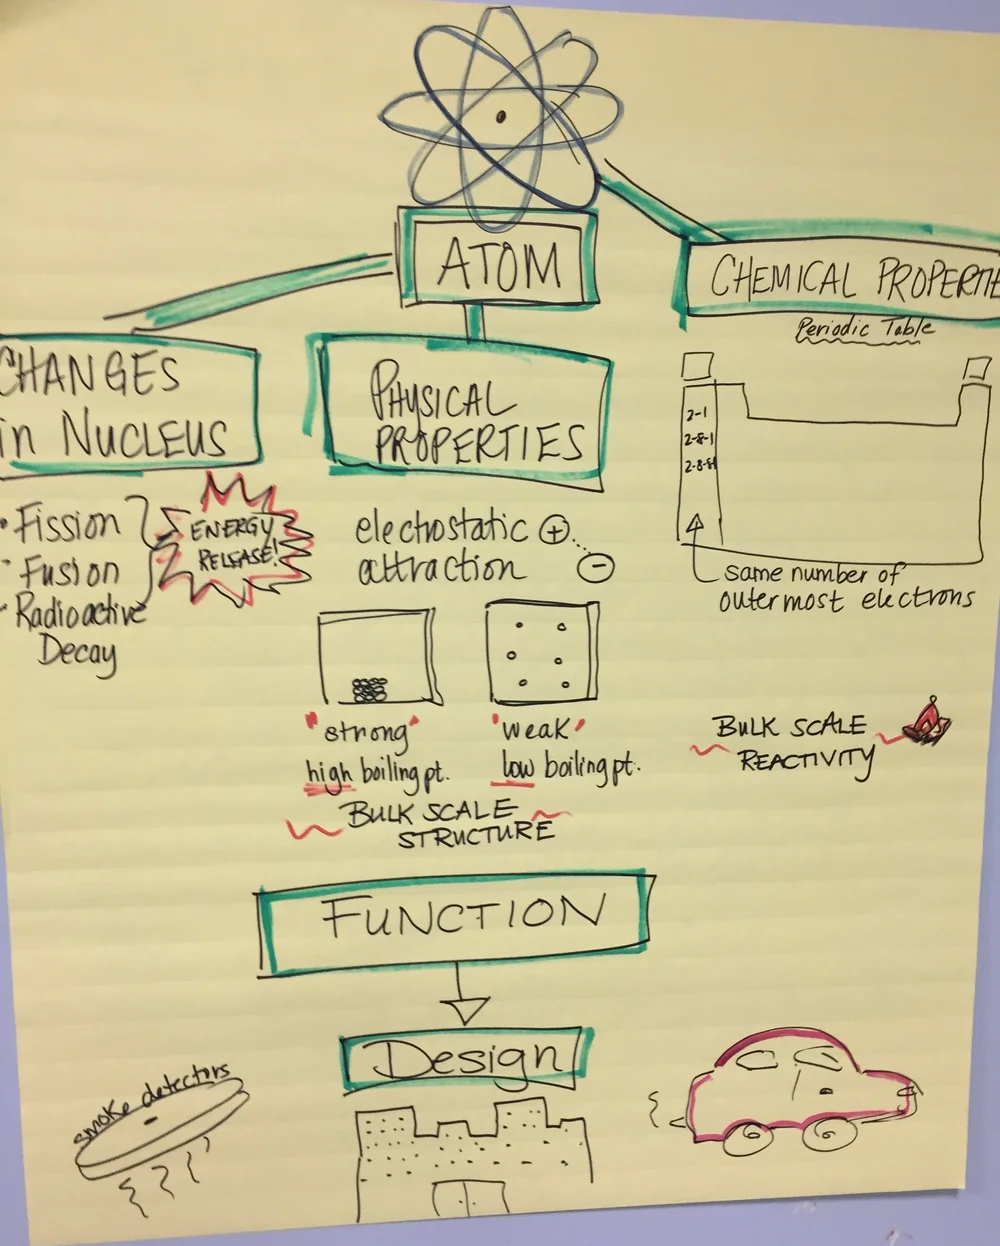 ATOM
CHANGES
in NUCLEUS
• Fission
• Fusion
• Radioactive
Decay
ENERGY
RELEASE!
PHYSICAL
PROPERTIES
electrostatic +
attraction −
"strong"
high boiling pt.
"weak"
low boiling pt.
BULK SCALE
STRUCTURE
CHEMICAL PROPERTIE
Periodic Table
2-1
2-8-1
same number of
outermost electrons
BULK SCALE
REACTIVITY
FUNCTION
Design
smoke detectors